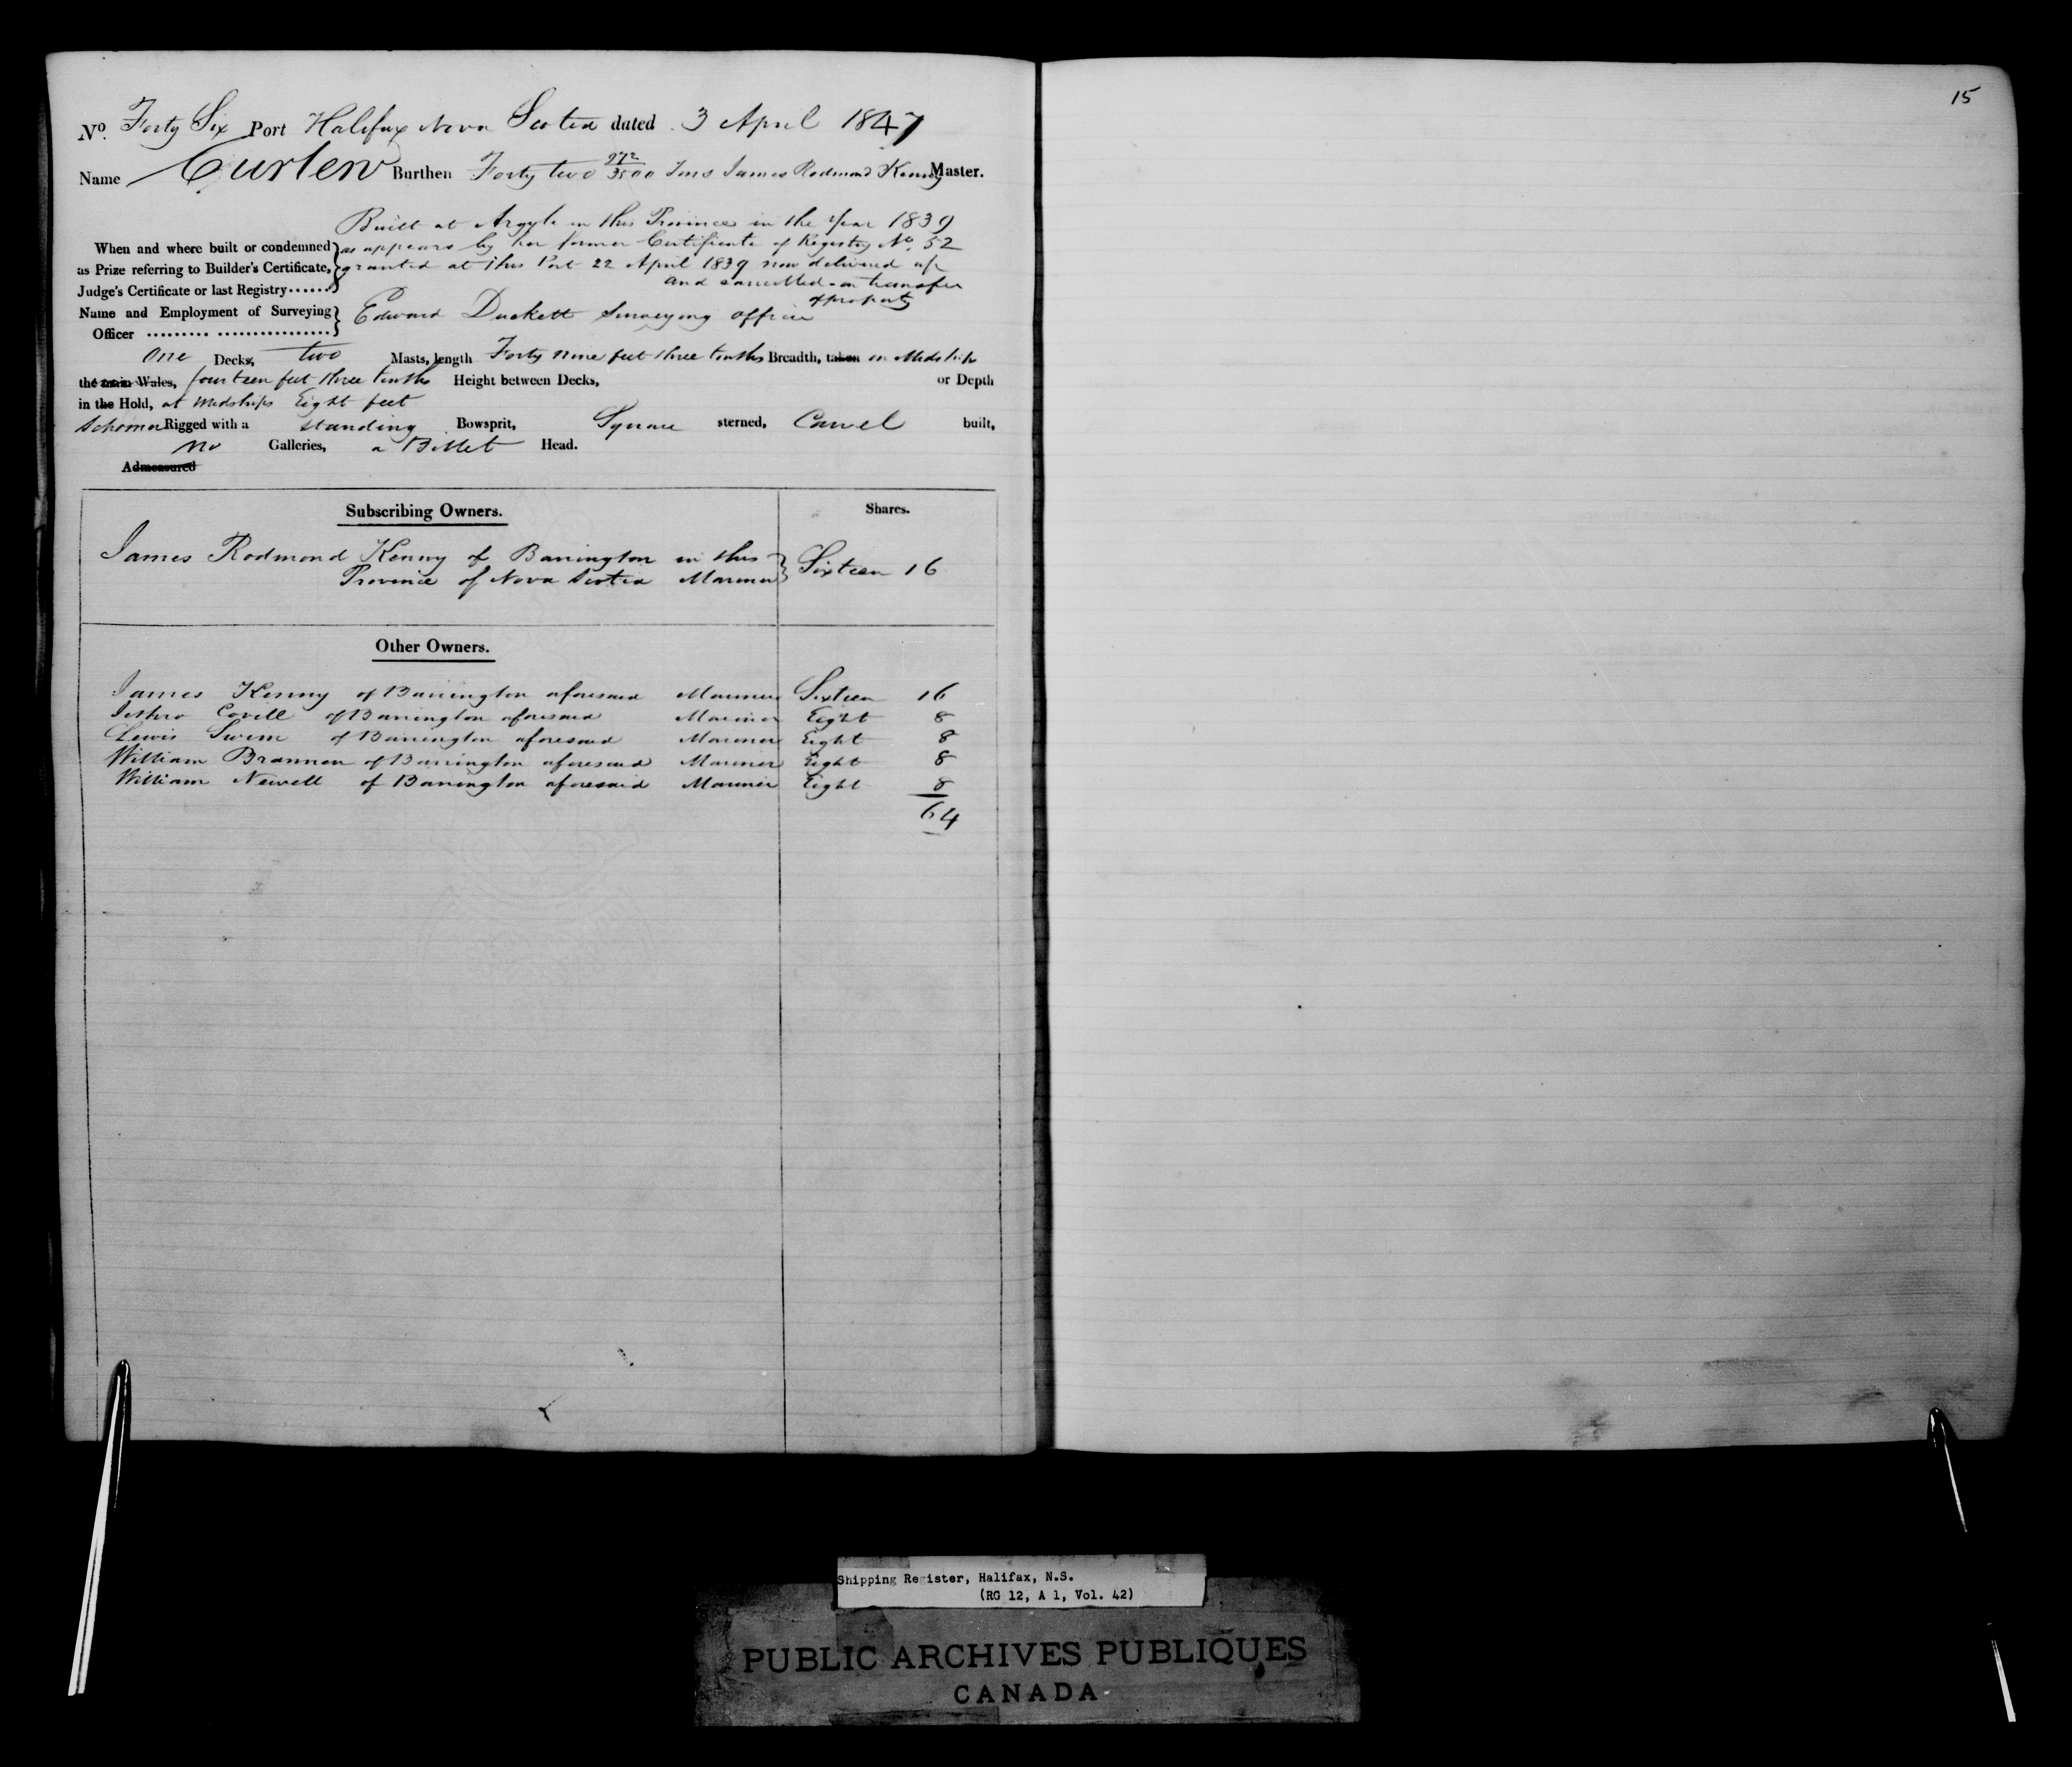 15
No. Forty Six Port Halifax Nova Scotia dated 3 April 1847
Name Curlew Burthen Forty two 272/3500 Tons James Rodmond Kenny Master.
Built at Argyle in this Province in the Year 1839
When and where built or condemned as appears by her former Certificate of Registry No. 52
as Prize referring to Builder's Certificate, granted at this Port 22 April 1839 now delivered up
Judge's Certificate or last Registry...... and cancelled on transfer
of property
Name and Employment of Surveying Edward Duckett Surveying officer
Officer ......... ................
One Decks, two Masts, length Forty nine feet three tenths Breadth, taken in Midships
the main Wales, fourteen feet three tenths Height between Decks, or Depth
in the Hold, at Midships Eight feet
Schooner Rigged with a standing Bowsprit, Square sterned, Carvel built,
no Galleries, a Billet Head.
Admeasured
Subscribing Owners. Shares.
James Rodmond Kenny of Barrington in this
Province of Nova Scotia Mariner Sixteen 16
Other Owners.
James Kenny of Barrington aforesaid Mariner Sixteen 16
Jethro Covell of Barrington aforesaid Mariner Eight 8
Lewis Swim of Barrington aforesaid Mariner Eight 8
William Brannen of Barrington aforesaid Mariner Eight 8
William Newell of Barrington aforesaid Mariner Eight 8
64
Shipping Register, Halifax, N.S.
(RG 12, A 1, Vol. 42)
PUBLIC ARCHIVES PUBLIQUES
CANADA